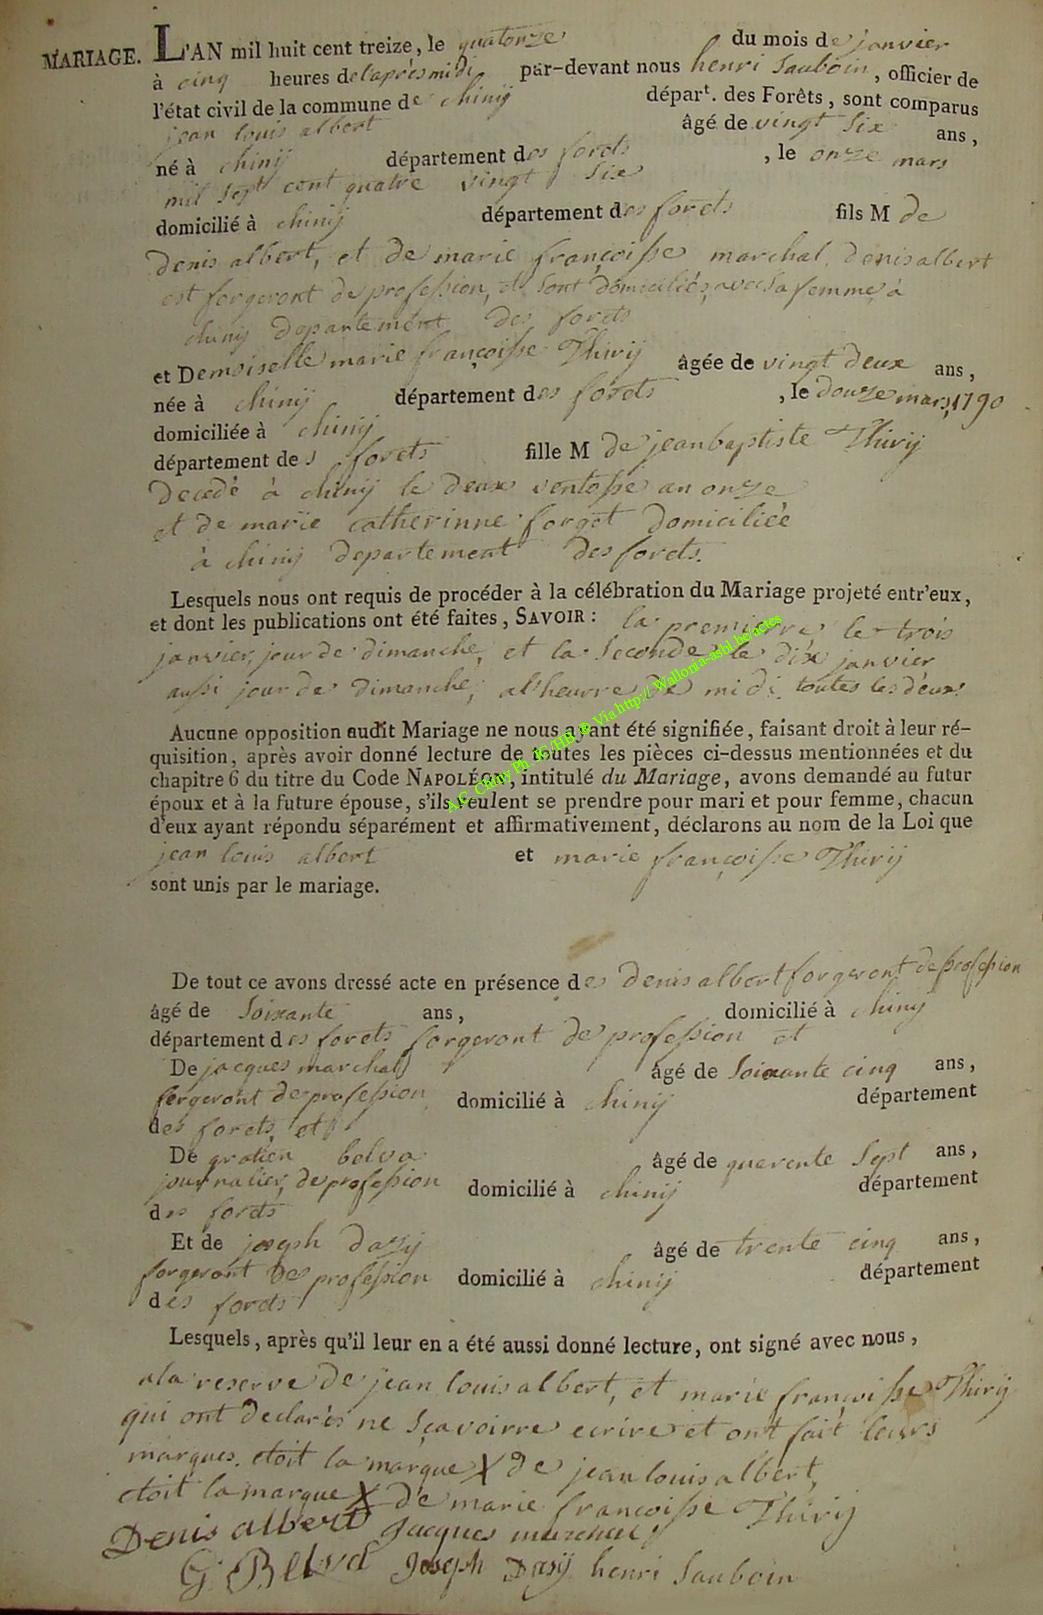 MARIAGE. L'AN mil huit cent treize, le quatorze du mois de janvier
à cinq heures de l'aprèsmidi par-devant nous henri Sauboin, officier de
l'état civil de la commune de chinij départ. des Forêts, sont comparus
jean louis albert âgé de vingt Six ans,
né à chinij département des forets, le onze mars
mil Sept cent quatre vingt Six
domicilié à chinij département des forets fils M de
denis albert, et de marie françoisse marchal, denis albert
est forgeront de profession, et Sont domiciliés, avec Sa femme, à
chinij departement des forets
et Demoiselle marie françoisse Thirij âgée de vingt deux ans,
née à chinij département des forets, le douze mars, 1790
domiciliée à chinij
département des forets fille M de jean baptiste Thirij
decedé à chinij le deux ventosse an onze
et de marie catherinne forget domiciliée
à chinij departement des forets.
Lesquels nous ont requis de procéder à la célébration du Mariage projeté entr'eux,
et dont les publications ont été faites, SAVOIR : la premierre, le trois
janvier, jour de dimanche, et la Seconde le dix janvier
aussi jour de dimanche, alheurre de midi toutes les deux.
Aucune opposition audit Mariage ne nous ayant été signifiée, faisant droit à leur ré-
quisition, après avoir donné lecture de toutes les pièces ci-dessus mentionnées et du
chapitre 6 du titre du Code NAPOLÉON, intitulé du Mariage, avons demandé au futur
époux et à la future épouse, s'ils veulent se prendre pour mari et pour femme, chacun
d'eux ayant répondu séparément et affirmativement, déclarons au nom de la Loi que
jean louis albert et marie françoisse Thirij
sont unis par le mariage.
A.C. Chiny Ph JC/HB © Via http://Wallonia-asbl.be/actes
De tout ce avons dressé acte en présence de denis albert forgeront de profession
âgé de Soixante ans, domicilié à chinij
département des forets forgeront de profession et
De jacques marchal âgé de Soixante cinq ans,
forgeront de profession domicilié à chinij département
des forets, et
De gratien belva âgé de querente Sept ans,
journalier, de profession domicilié à chinij département
des forets
Et de joseph dazij âgé de trente cinq ans,
forgeront de profession domicilié à chinij département
des forets
Lesquels, après qu'il leur en a été aussi donné lecture, ont signé avec nous,
ala reserve de jean louis albert, et marie françoisse Thirij
qui ont declarés ne sçavoirre ecrire et ont fait leurs
marques. etoit la marque X de jean louis albert,
etoit la marque X de marie francoisse Thirij
Denis albert Jacques marchal
G Belva Joseph Dasij henri Sauboin